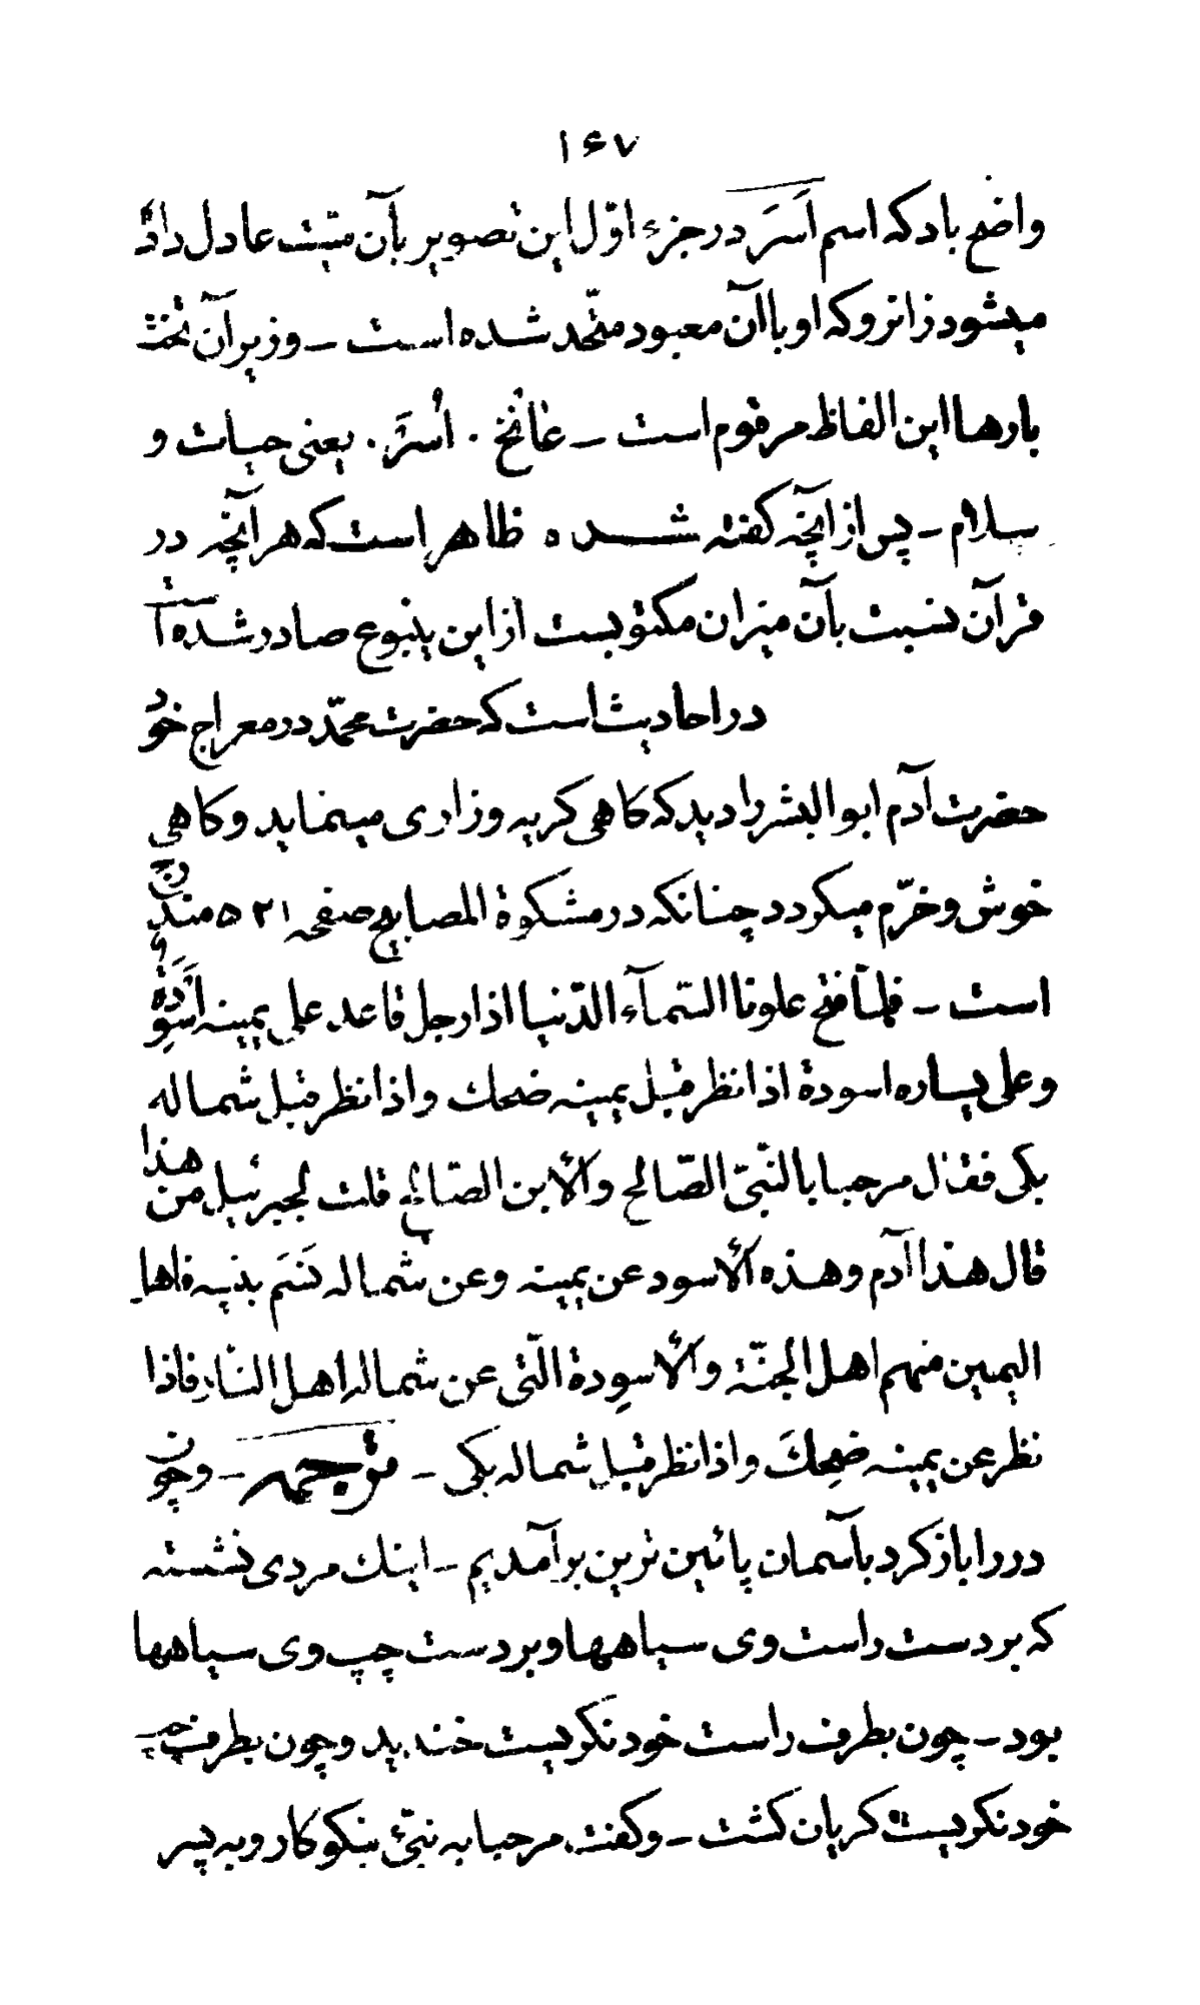 ۱۶۷
واضح باد که اسم اَسَرَ در جزء اوّل این تصویر بآن میّت عادل داده
میشود زانرو که او باآن معبود متّحد شده است ــ و زیر آن تخت
بارها این الفاظ مرقوم است ــ عانٔخ ۰ اُسَرَ ۰ یعنی حیات و
سلام ــ پس از آنچه کفته شده ظاهر است که هر آنچه در
قرآن نسبت بآن میزان مکتوبست از این ینبوع صادر شده است
در احادیث است که حضرت محمّد در معراج خود
حضرت آدم ابو البشر را دید که کاهی کریه و زاری مینماید و کاهی
خوش و خرّم میکردد چنانکه در مشکوة المصابیح صفحه ۵۲۱ مندرج
است ــ فلمّا فتح علونا السّمآء الدّنیا اذا رجل قاعد علی یمینه اَسْوِدَةٌ
و علی یساره اسودة اذا نظر قبل یمینه ضحك و اذا نظر قبل شماله
بکی فقال مرحبا بالنّبیّ الصّالح و الأبن الصّالح قلت لجبرئیل من هذا
قال هذا آدم و هذه الأسود عن یمینه و عن شماله نَسَمَ بنیه فاهل
الیمین منهم اهل الجنّة و الأسوِدة الّتی عن شماله اهل النّار فاذا
نظر عن یمینه ضحِكَ و اذا نظر قبل شماله بکی ــ ترجمه ــ و چون
در را باز کرد بآسمان پائین ترین برآمدیم ــ اینك مردی نشسته
که بر دست راست وی سیاهها و بر دست چپ وی سیاهها
بود ــ چون بطرف راست خود نکریست خندید و چون بطرف چپ
خود نکریست کریان کشت ــ و کفت مرحبا به نبیّ نیکوکار و به پسر